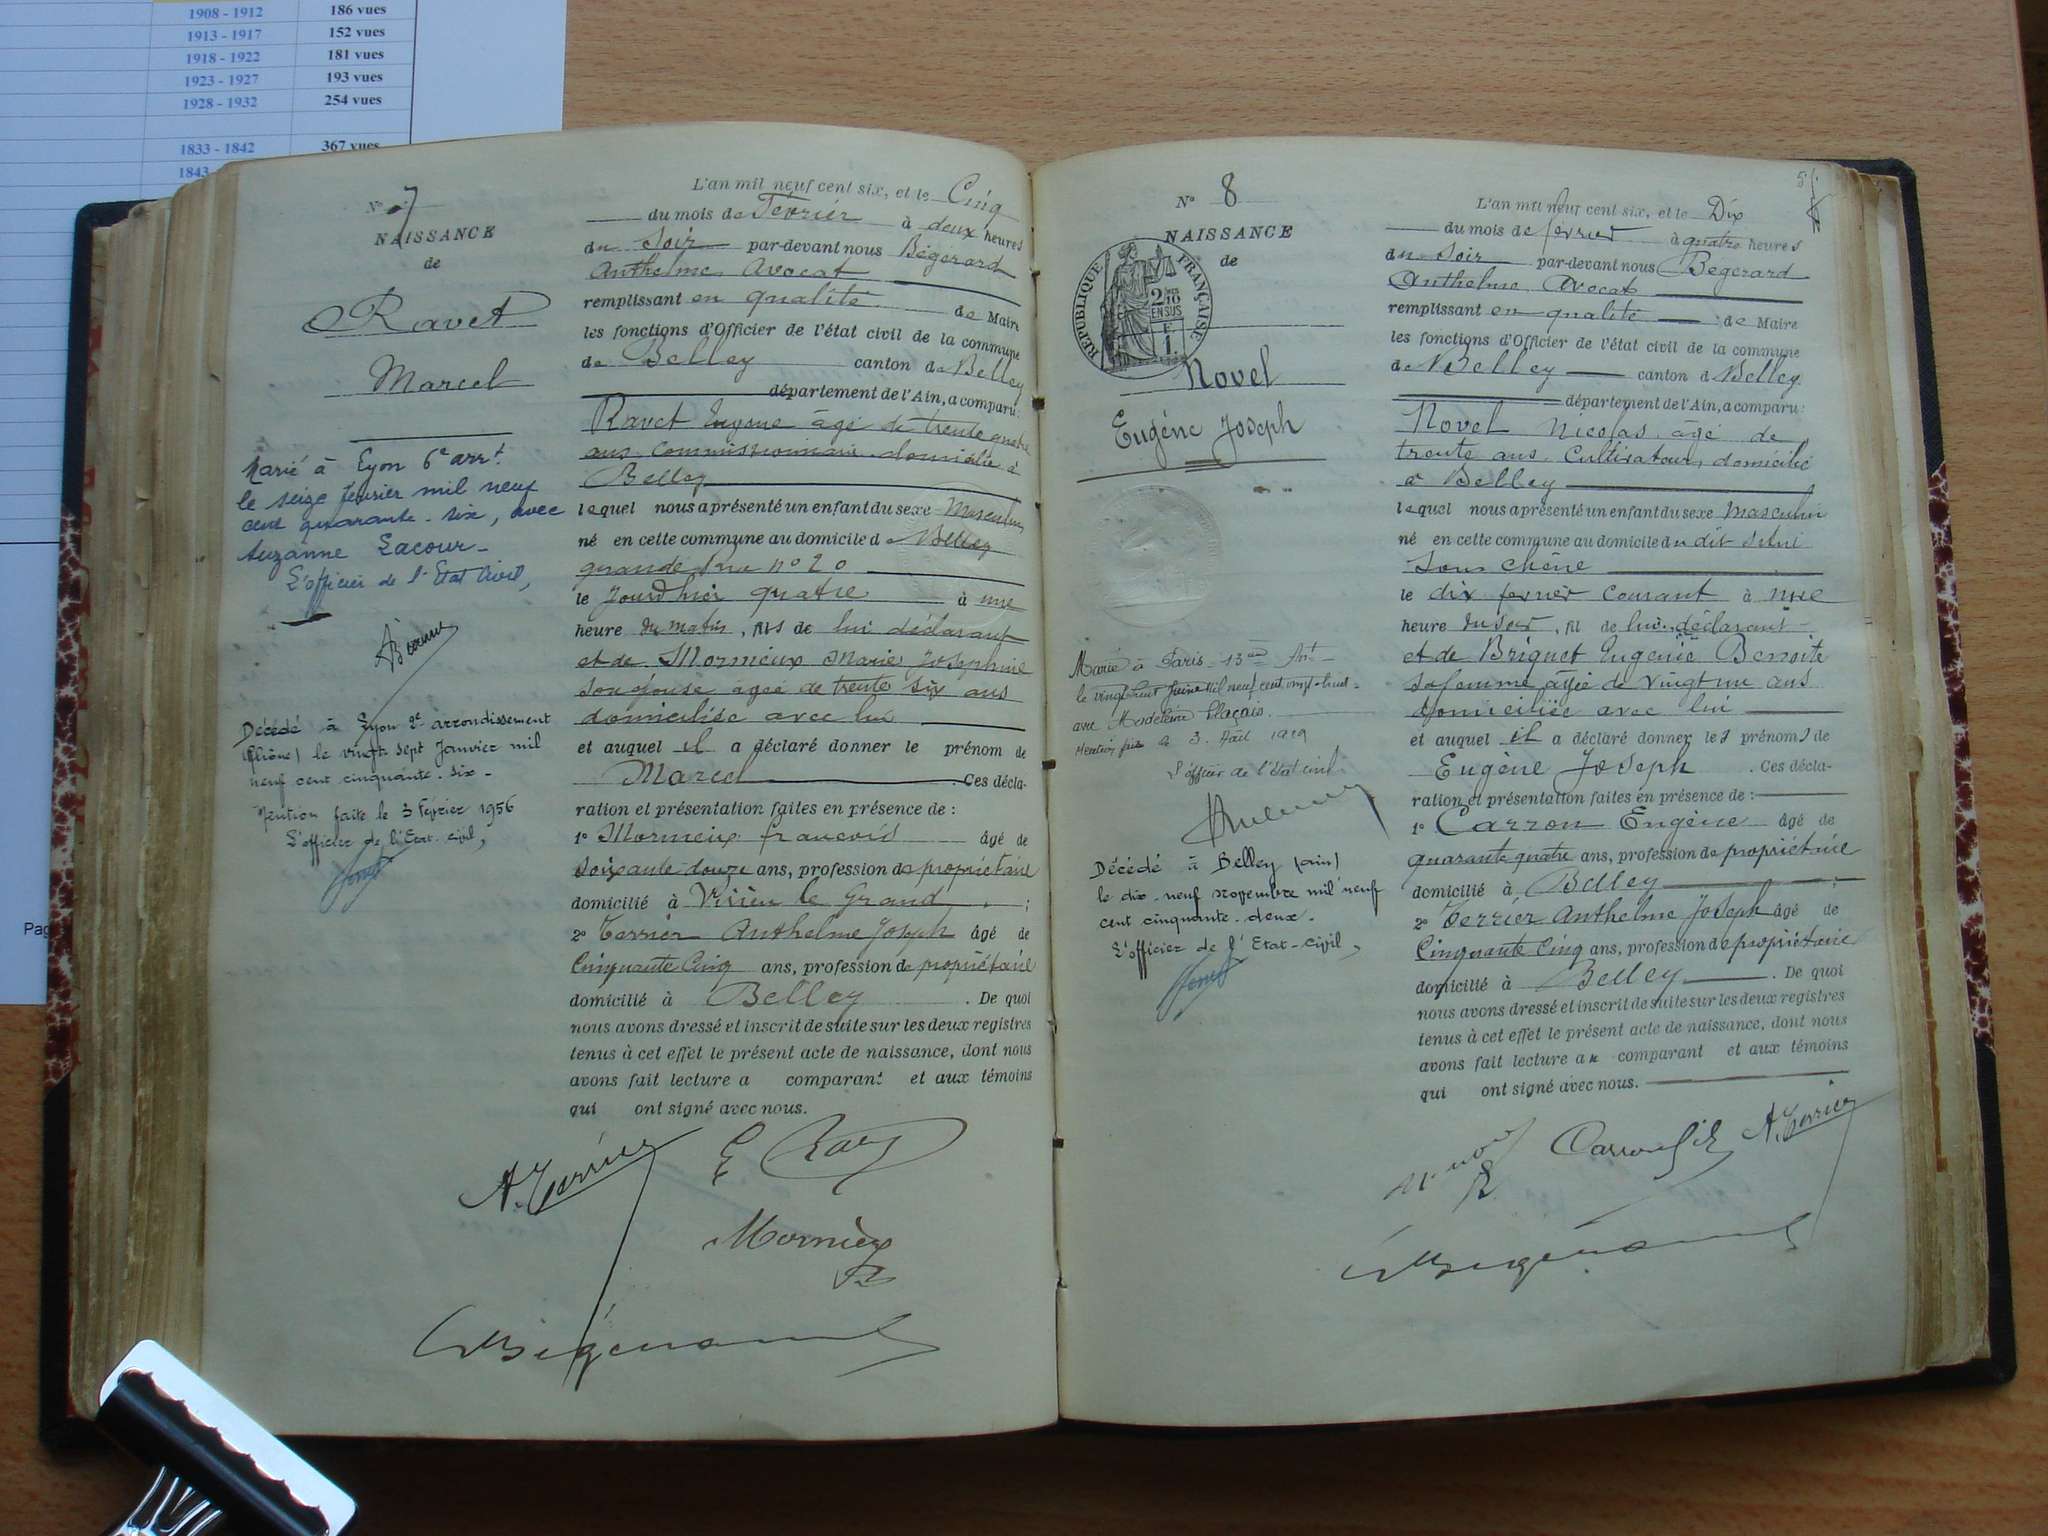 1908 - 1912 186 vues
1913 - 1917 152 vues
1918 - 1922 181 vues
1923 - 1927 193 vues
1928 - 1932 254 vues
1833 - 1842 367 vues
1843
Pag
N° 7
NAISSANCE
de
Ravet
Marcel
Marié à Lyon 6e arrt.
le seize février mil neuf
cent quarante-six, avec
Suzanne Lacour-
L'officier de l'Etat Civil,
Décédé à Lyon 2e arrondissement
(Rhône) le vingt-sept Janvier mil
neuf cent cinquante-six-
Mention faite le 3 Février 1956
L'officier de l'Etat-civil,
L'an mil neuf cent six, et le Cinq
du mois de Février à deux heures
du Soir par-devant nous Bégerard
Anthelme, Avocat
remplissant en qualité de Maire
les fonctions d'Officier de l'état civil de la commune
de Belley canton de Belley
département de l'Ain, a comparu:
Ravet Eugène âgé de trente quatre
ans, Commissionnaire domicilié à
Belley
lequel nous a présenté un enfant du sexe Masculin
né en cette commune au domicile de Belley
grande Rue n° 20
le jourd'hier quatre à une
heure du matin, fils de lui déclarant
et de Mornieux Marie Josephine
son épouse âgée de trente six ans
domiciliée avec lui
et auquel il a déclaré donner le prénom de
Marcel Ces décla-
ration et présentation faites en présence de :
1° Mornieux francois âgé de
Soixante douze ans, profession de propriétaire
domicilié à Virieu le Grand ;
2° Terrier Anthelme Joseph âgé de
Cinquante Cinq ans, profession de propriétaire
domicilié à Belley . De quoi
nous avons dressé et inscrit de suite sur les deux registres
tenus à cet effet le présent acte de naissance, dont nous
avons fait lecture a comparant et aux témoins
qui ont signé avec nous.
A. Terrier
Mornieux
N° 8
NAISSANCE
de
RÉPUBLIQUE FRANÇAISE
2/10
EN SUS
F
1.
Novel
Eugène Joseph
Marié à Paris 13me Art
le vingt huit mil neuf cent vingt-huit-
avec Madeleine
Mention faite le 3. 1929
L'officier de l'état civil
Décédé à Belley (ain)
le dix-neuf novembre mil neuf
cent cinquante-deux-
L'officier de l'Etat-civil,
L'an mil neuf cent six, et le Dix
du mois de fevrier à quatre heures
du soir par-devant nous Bégerard
Anthelme, Avocat
remplissant en qualité de Maire
les fonctions d'Officier de l'état civil de la commune
de Belley canton d Belley
département de l'Ain, a comparu:
Novel Nicolas âgé de
trente ans, Cultivateur, domicilié
à Belley
lequel nous a présenté un enfant du sexe masculin
né en cette commune au domicile du dit
Sous Chêne
le dix fevrier Courant à une
heure du soir, fil de lui déclarant
et de Briquet Eugenie Benoite
sa femme âgée de vingt un ans
domiciliée avec lui
et auquel il a déclaré donner les prénoms de
Eugène Joseph . Ces décla-
ration et présentation faites en présence de :
1° Carron Eugène âgé de
quarante quatre ans, profession de propriétaire
domicilié à Belley ;
2° Terrier Anthelme Joseph âgé de
Cinquante Cinq ans, profession de propriétaire
domicilié à Belley . De quoi
nous avons dressé et inscrit de suite sur les deux registres
tenus à cet effet le présent acte de naissance, dont nous
avons fait lecture au comparant et aux témoins
qui ont signé avec nous.
A. Terrier